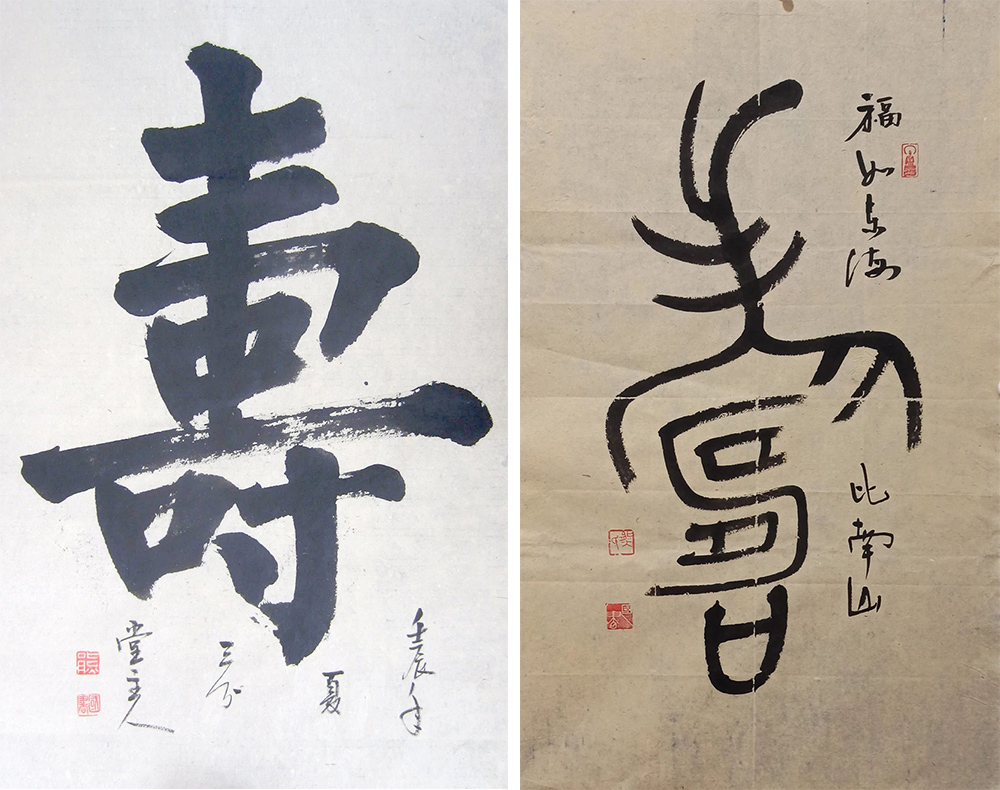 壽
壬辰年
夏
三分
堂主人
福如东海
壽
比南山